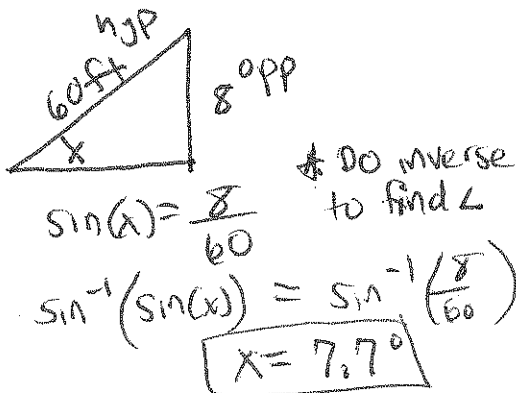 hyp
60ft
8 opp
x
* Do inverse
to find ∠
sin(x) = 8/60
sin⁻¹(sin(x)) = sin⁻¹(8/60)
x = 7.7°